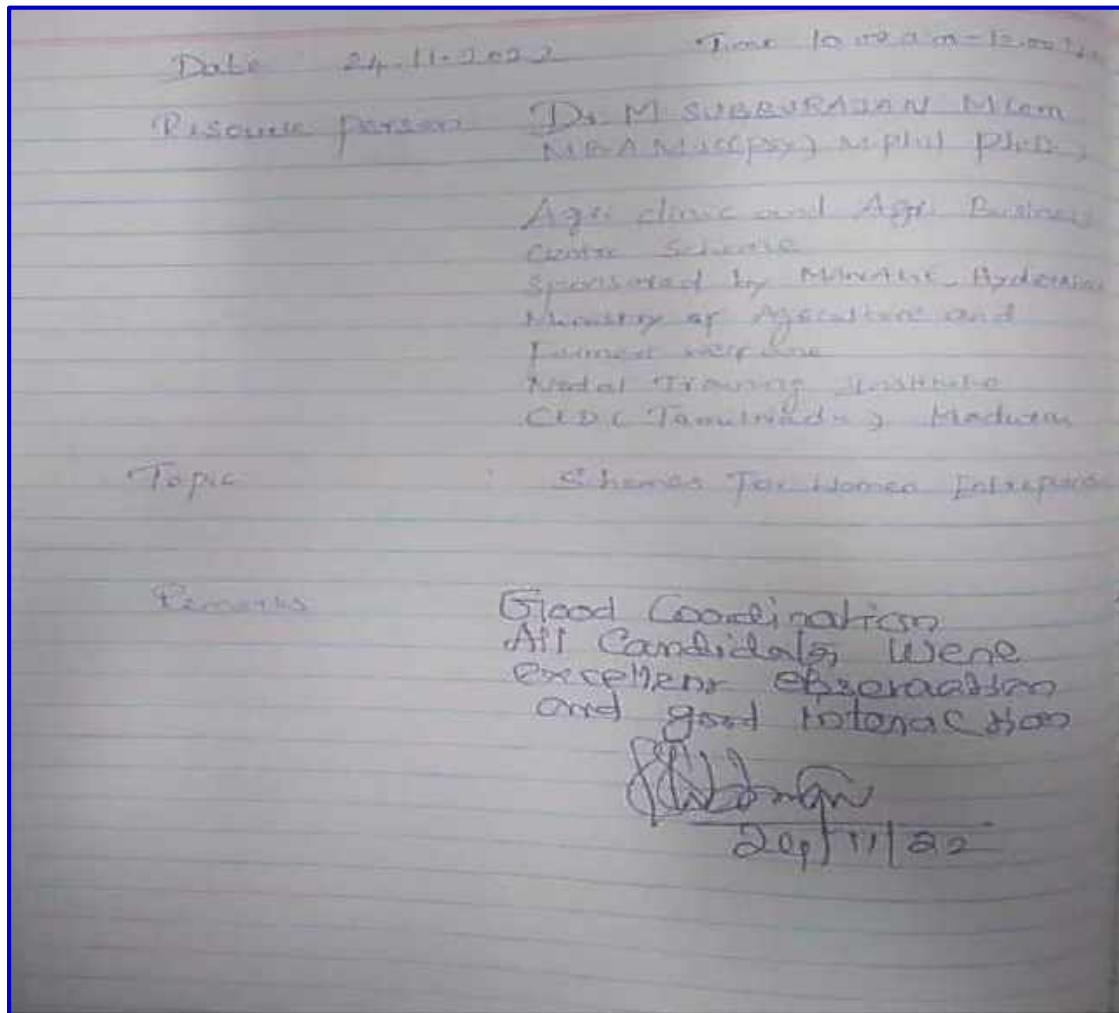 Date 24.11.2022 Time 10.00 am - 12.00
Resource person Dr M SUBBURAJAN Mcom
MBA M.sc(psy) M.phil Ph.D,
Agri clinic and Agri Business
Centre Scheme
Sponsored by MANAGE, Hyderabad
Ministry of Agriculture and
Farmers welfare
Nodal Training Institute
(Tamilnadu), Madurai
Topic : Schemes For Women
Remarks Good Coordination
All Candidates Were
excellent observation
and good interaction
24/11/22